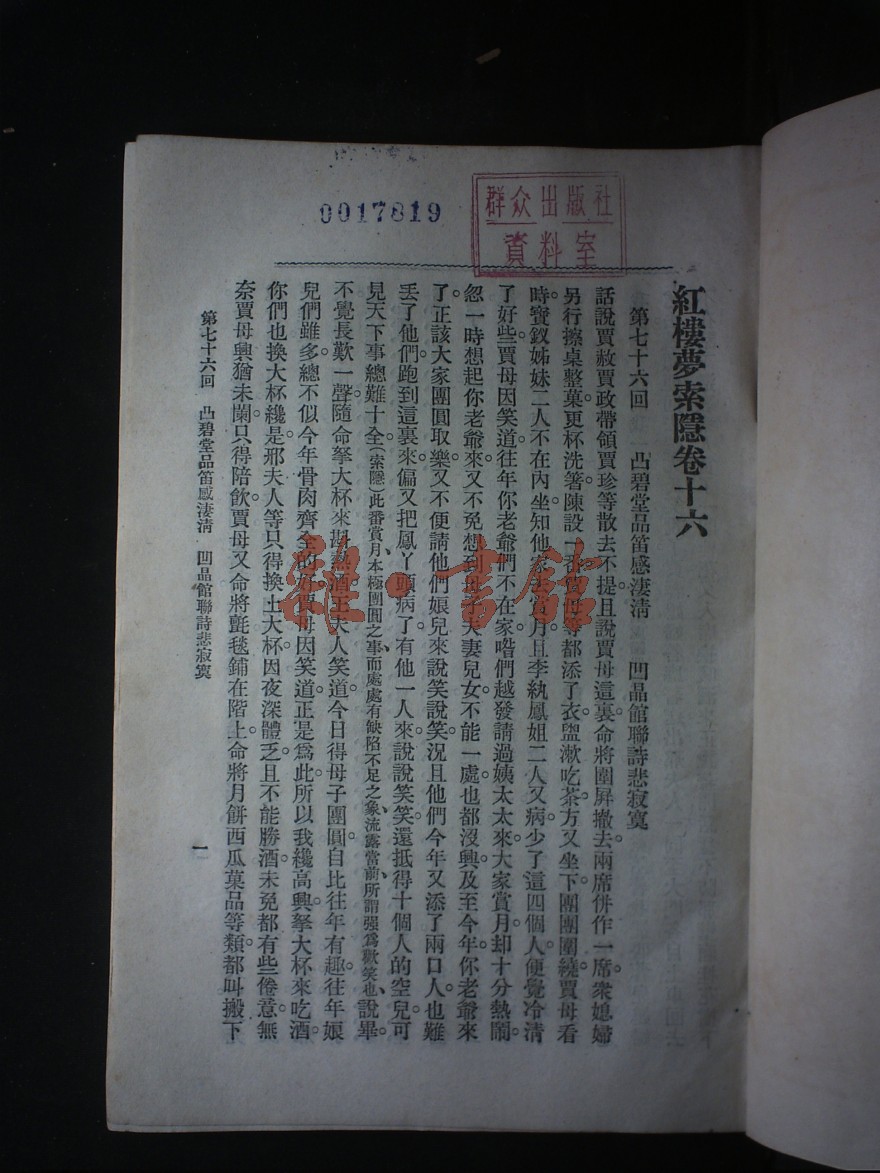 0017819
群众出版社
資料室
紅樓夢索隱卷十六
第七十六回 凸碧堂品笛感淒清 凹晶館聯詩悲寂寞
話說賈赦賈政帶領賈珍等散去不提且說賈母這裏命將圍屏撤去兩席併作一席衆媳婦
另行擦桌整菓更杯洗箸陳設一番賈母等都添了衣盥漱吃茶方又坐下團團圍繞賈母看
時寶釵姊妹二人不在內坐知他家去賞月且李紈鳳姐二人又病少了這四個人便覺冷清
了好些賈母因笑道往年你老爺們不在家喒們越發請過姨太太來大家賞月却十分熱鬧
忽一時想起你老爺來又不免想到母子夫妻兒女不能一處也都沒興及至今年你老爺來
了正該大家團圓取樂又不便請他們娘兒來說笑說笑況且他們今年又添了兩口人也難
丟了他們跑到這裏來偏又把鳳丫頭病了有他一人來說說笑笑還抵得十個人的空兒可
見天下事總難十全(索隱)此番賞月本極團圓之事而處處有缺陷不足之象流露當前所謂强爲歡笑也說畢
不覺長歎一聲隨命拏大杯來斟熱酒王夫人笑道今日得母子團圓自比往年有趣往年娘
兒們雖多總不似今年骨肉齊全的好賈母因笑道正是爲此所以我纔高興拏大杯來吃酒
你們也換大杯纔是邢夫人等只得換上大杯因夜深體乏且不能勝酒未免都有些倦意無
奈賈母興猶未闌只得陪飲賈母又命將氈毯鋪在階上命將月餅西瓜菓品等類都叫搬下
第七十六回 凸碧堂品笛感淒清 凹晶館聯詩悲寂寞
一
雜·書館